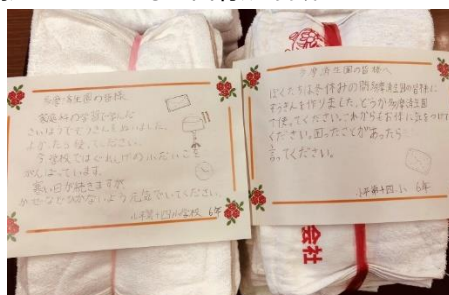 多摩済生園の皆様
家庭科の学習で学んだ
さいほうでぞうきんをぬいました。
よかったら使ってください。
今学校では
がんばっています。
寒い日が続きますが
かぜなどひかないよう元気でいてください。
小平第十四小学校 6年
多摩済生園の皆様へ
ぼくたちは冬休みの間多摩済生園の皆様に
ぞうきんを作りました。どうか多摩済生園
で使ってください。これからもお体に気をつけて
ください。困ったことがあったら
言ってください。
小平第十四小 6年
会社